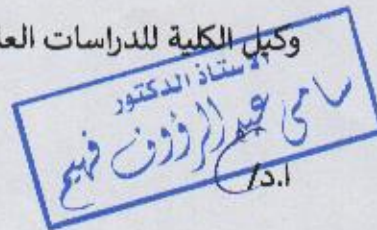 وكيل الكلية للدراسات العل
الاستاذ الدكتور
سامى عبد الرؤوف فهيم
ا.د/